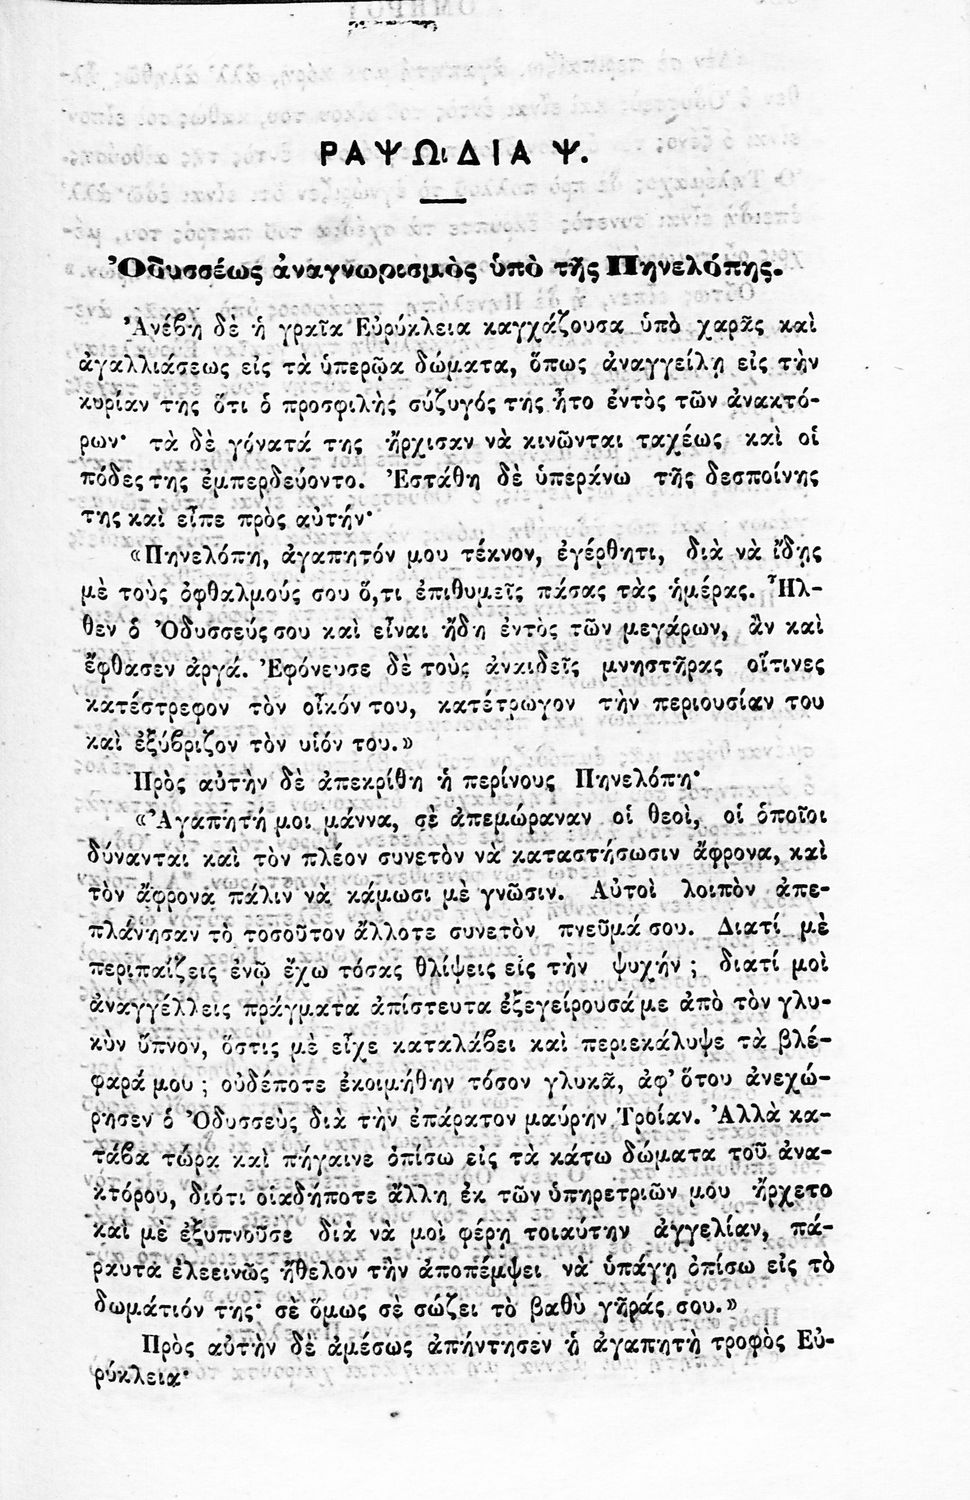 ΡΑΨΩΙΔΙΑ Ψ.
Ὀδυσσέως ἀναγνωρισμὸς ὑπὸ τῆς Πηνελόπης.
Ἀνέβη δὲ ἡ γραῖα Εὐρύκλεια καγχάζουσα ὑπὸ χαρᾶς καὶ
ἀγαλλιάσεως εἰς τὰ ὑπερῷα δώματα, ὅπως ἀναγγείλῃ εἰς τὴν
κυρίαν της ὅτι ὁ προσφιλὴς σύζυγός της ἦτο ἐντὸς τῶν ἀνακτό-
ρων· τὰ δὲ γόνατά της ἤρχισαν νὰ κινῶνται ταχέως καὶ οἱ
πόδες της ἐμπερδεύοντο. Ἐστάθη δὲ ὑπεράνω τῆς δεσποίνης
της καὶ εἶπε πρὸς αὐτήν·
«Πηνελόπη, ἀγαπητόν μου τέκνον, ἐγέρθητι, διὰ νὰ ἴδῃς
μὲ τοὺς ὀφθαλμούς σου ὅ,τι ἐπιθυμεῖς πάσας τὰς ἡμέρας. Ἦλ-
θεν ὁ Ὀδυσσεύς σου καὶ εἶναι ἤδη ἐντὸς τῶν μεγάρων, ἂν καὶ
ἔφθασεν ἀργά. Ἐφόνευσε δὲ τοὺς ἀναιδεῖς μνηστῆρας οἵτινες
κατέστρεφον τὸν οἶκόν του, κατέτρωγον τὴν περιουσίαν του
καὶ ἐξύβριζον τὸν υἱόν του.»
Πρὸς αὐτὴν δὲ ἀπεκρίθη ἡ περίνους Πηνελόπη·
«Ἀγαπητή μοι μάννα, σὲ ἀπεμώραναν οἱ θεοὶ, οἱ ὁποῖοι
δύνανται καὶ τὸν πλέον συνετὸν νὰ καταστήσωσιν ἄφρονα, καὶ
τὸν ἄφρονα πάλιν νὰ κάμωσι μὲ γνῶσιν. Αὐτοὶ λοιπὸν ἀπε-
πλάνησαν τὸ τοσοῦτον ἄλλοτε συνετὸν πνεῦμά σου. Διατί μὲ
περιπαίζεις ἐνῷ ἔχω τόσας θλίψεις εἰς τὴν ψυχήν ; διατί μοὶ
ἀναγγέλλεις πράγματα ἀπίστευτα ἐξεγείρουσά με ἀπὸ τὸν γλυ-
κὺν ὕπνον, ὅστις μὲ εἶχε καταλάβει καὶ περιεκάλυψε τὰ βλέ-
φαρά μου ; οὐδέποτε ἐκοιμήθην τόσον γλυκὰ, ἀφ' ὅτου ἀνεχώ-
ρησεν ὁ Ὀδυσσεὺς διὰ τὴν ἐπάρατον μαύρην Τροίαν. Ἀλλὰ κα-
τάβα τώρα καὶ πήγαινε ὀπίσω εἰς τὰ κάτω δώματα τοῦ ἀνα-
κτόρου, διότι οἱαδήποτε ἄλλη ἐκ τῶν ὑπηρετριῶν μου ἤρχετο
καὶ μὲ ἐξυπνοῦσε διὰ νὰ μοὶ φέρῃ τοιαύτην ἀγγελίαν, πά-
ραυτα ἐλεεινῶς ἤθελον τὴν ἀποπέμψει νὰ ὑπάγῃ ὀπίσω εἰς τὸ
δωμάτιόν της· σὲ ὅμως σὲ σώζει τὸ βαθὺ γῆράς σου.»
Πρὸς αὐτὴν δὲ ἀμέσως ἀπήντησεν ἡ ἀγαπητὴ τροφὸς Εὐ-
ρύκλεια·